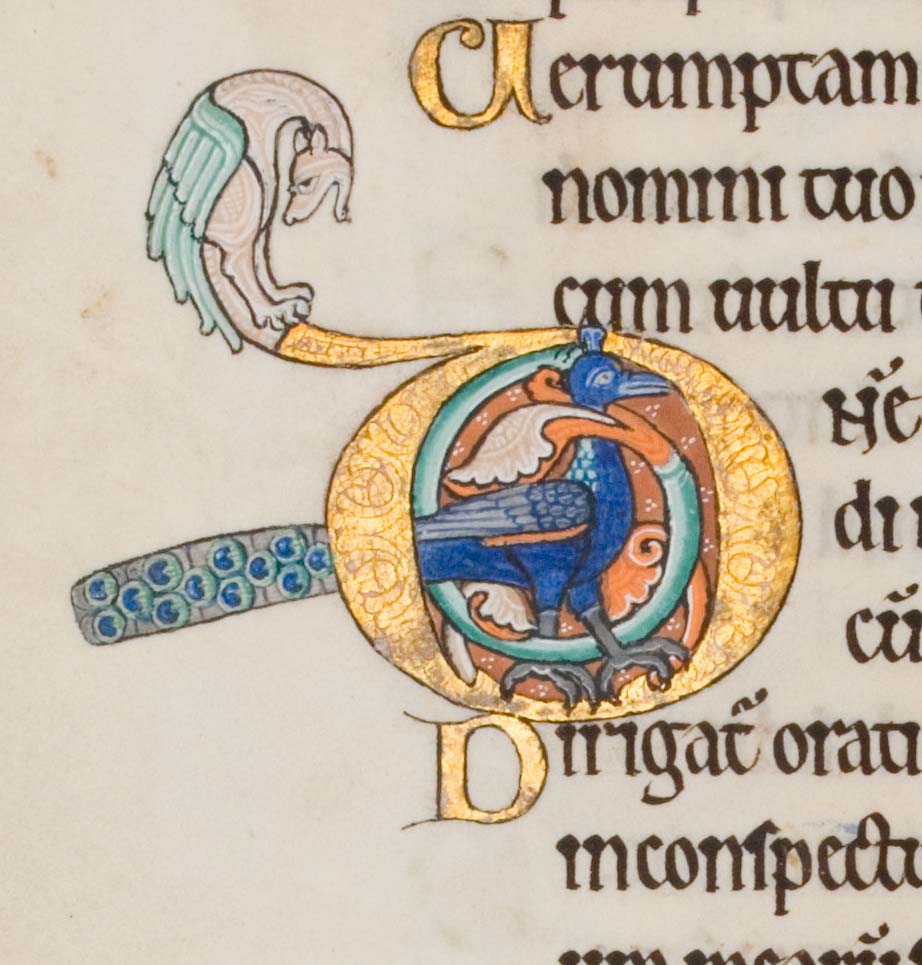 Uerumptam
nomini tuo
cum uultu
Dñe
di
cū
Dirigat̄ orati
inconſpectu